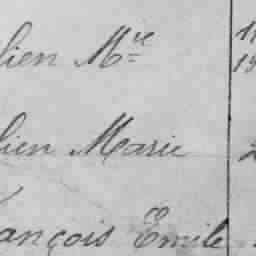 lien Mie
lien Marie
ançois Emile